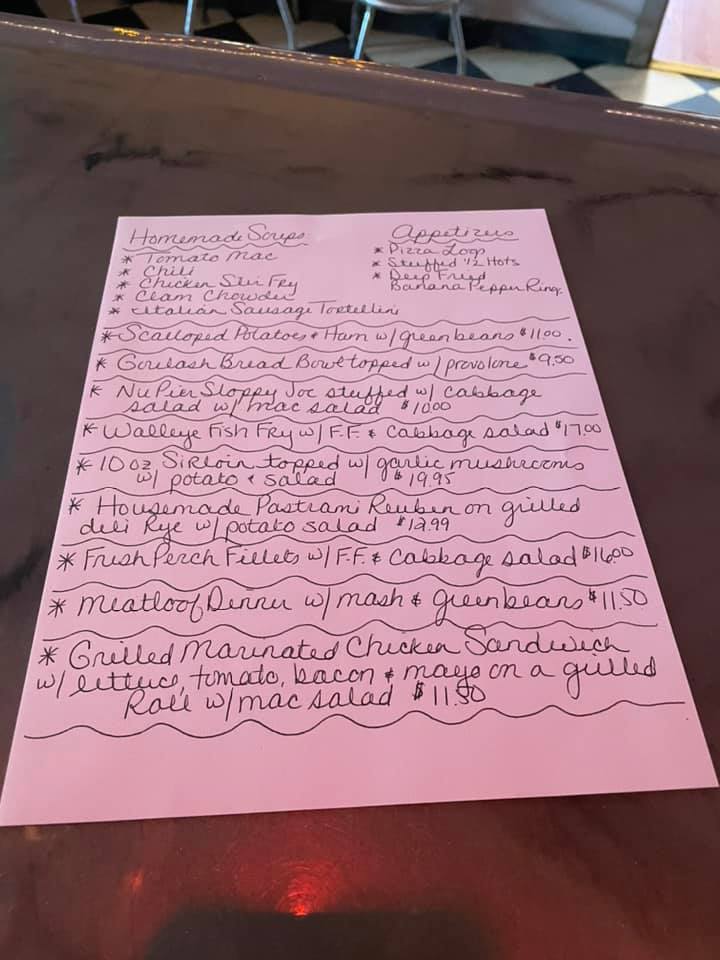 Homemade Soups
* Tomato Mac
* Chili
* Chicken Stir Fry
* Clam Chowder
* Italian Sausage Tortellini
Appetizers
* Pizza Logs
* Stuffed 1/2 Hots
* Deep Fried
Banana Pepper Rings
* Scalloped Potatoes & Ham w/ green beans $11.00.
* Goulash Bread Bowl topped w/ provolone $9.50
* NuPier Sloppy Joe stuffed w/ cabbage
salad w/ mac salad $10.00
* Walleye Fish Fry w/ F.F. & Cabbage salad $17.00
* 10 oz Sirloin topped w/ garlic mushrooms
w/ potato & salad $19.95
* Housemade Pastrami Reuben on grilled
deli Rye w/ potato salad $12.99
* Fresh Perch Fillets w/ F.F. & Cabbage salad $16.00
* Meatloaf Dinner w/ mash & green beans $11.50
* Grilled Marinated Chicken Sandwich
w/ lettuce, tomato, bacon & mayo on a grilled
Roll w/ mac salad $11.50